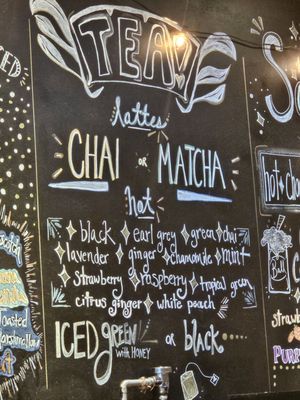 TEA!
lattes
CHAI or MATCHA
hot
black earl grey green chai
lavender ginger chamomile mint
strawberry raspberry tropical green
citrus ginger white peach
ICED green or black
with HONEY
ICED
hot